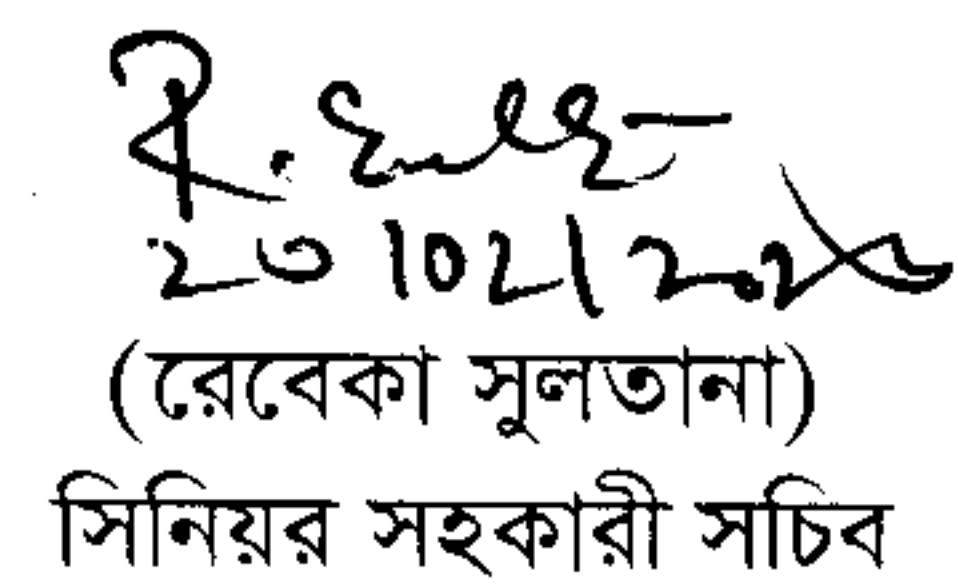 ২৩/০২/২০২৫
(রেবেকা সুলতানা)
সিনিয়র সহকারী সচিব